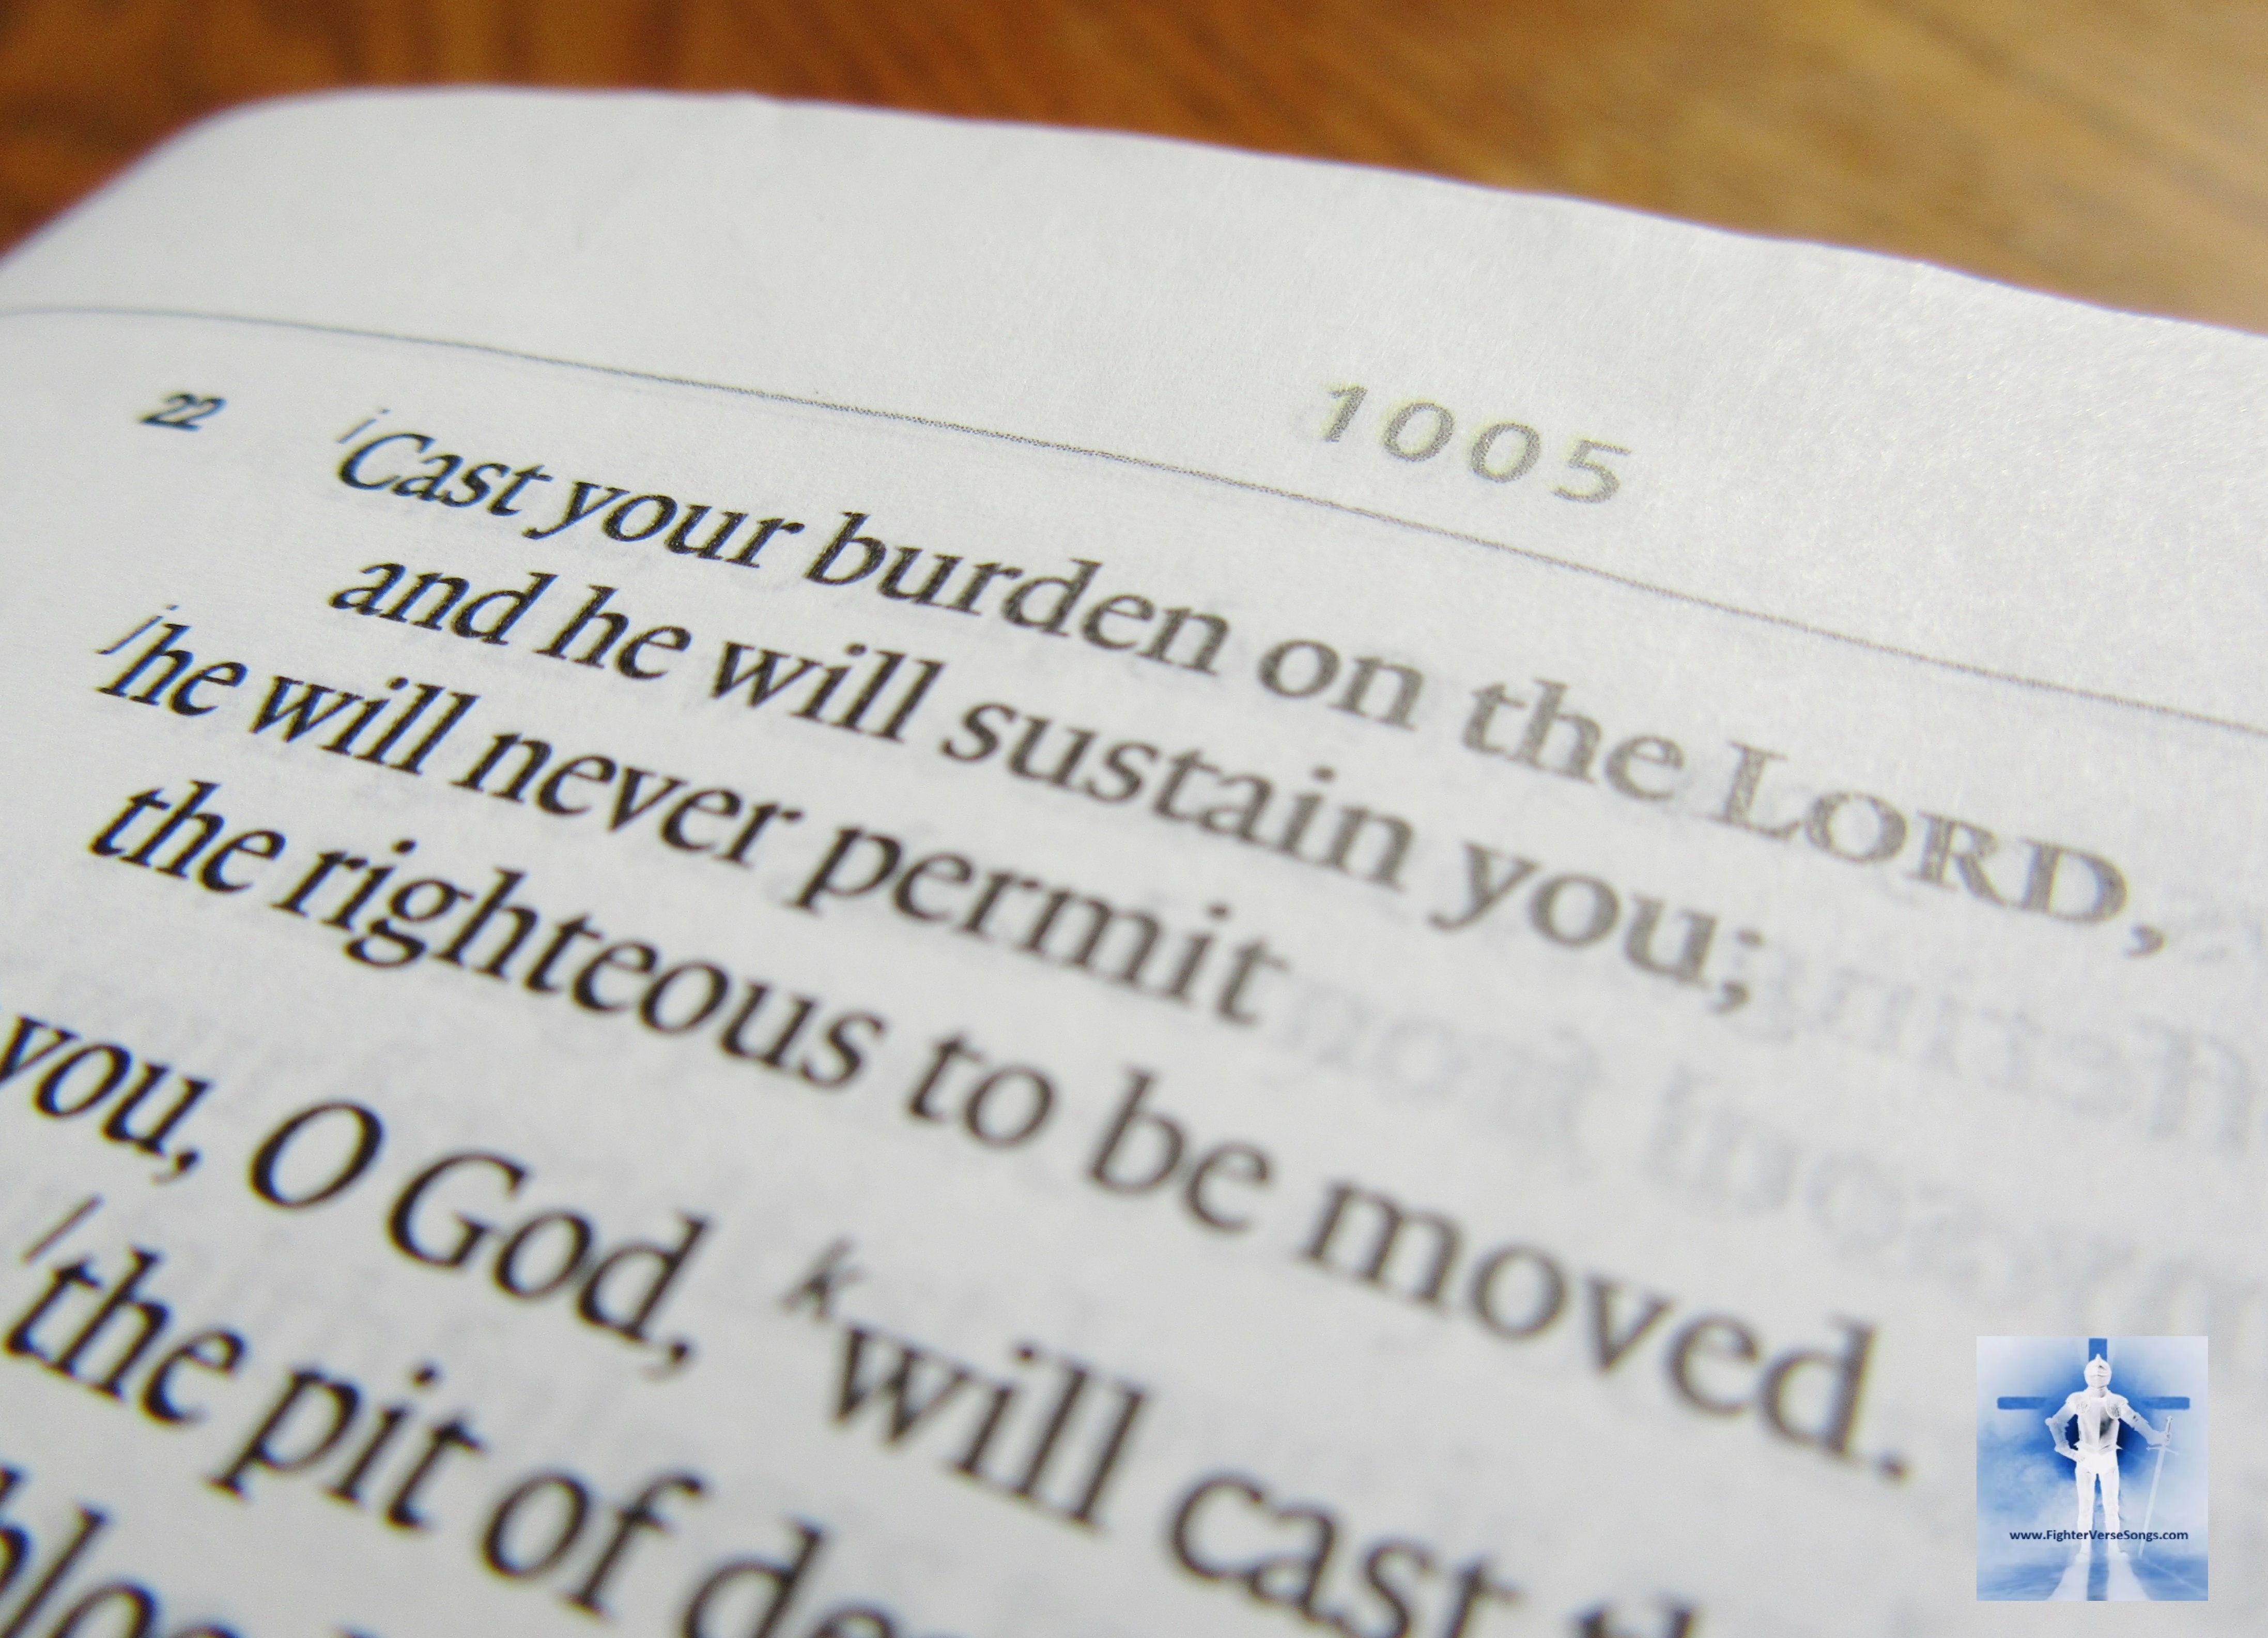 1005
22 iCast your burden on the LORD,
and he will sustain you;
jhe will never permit
the righteous to be moved.
you, O God, kwill cast
lthe pit of
www.FighterVerseSongs.com